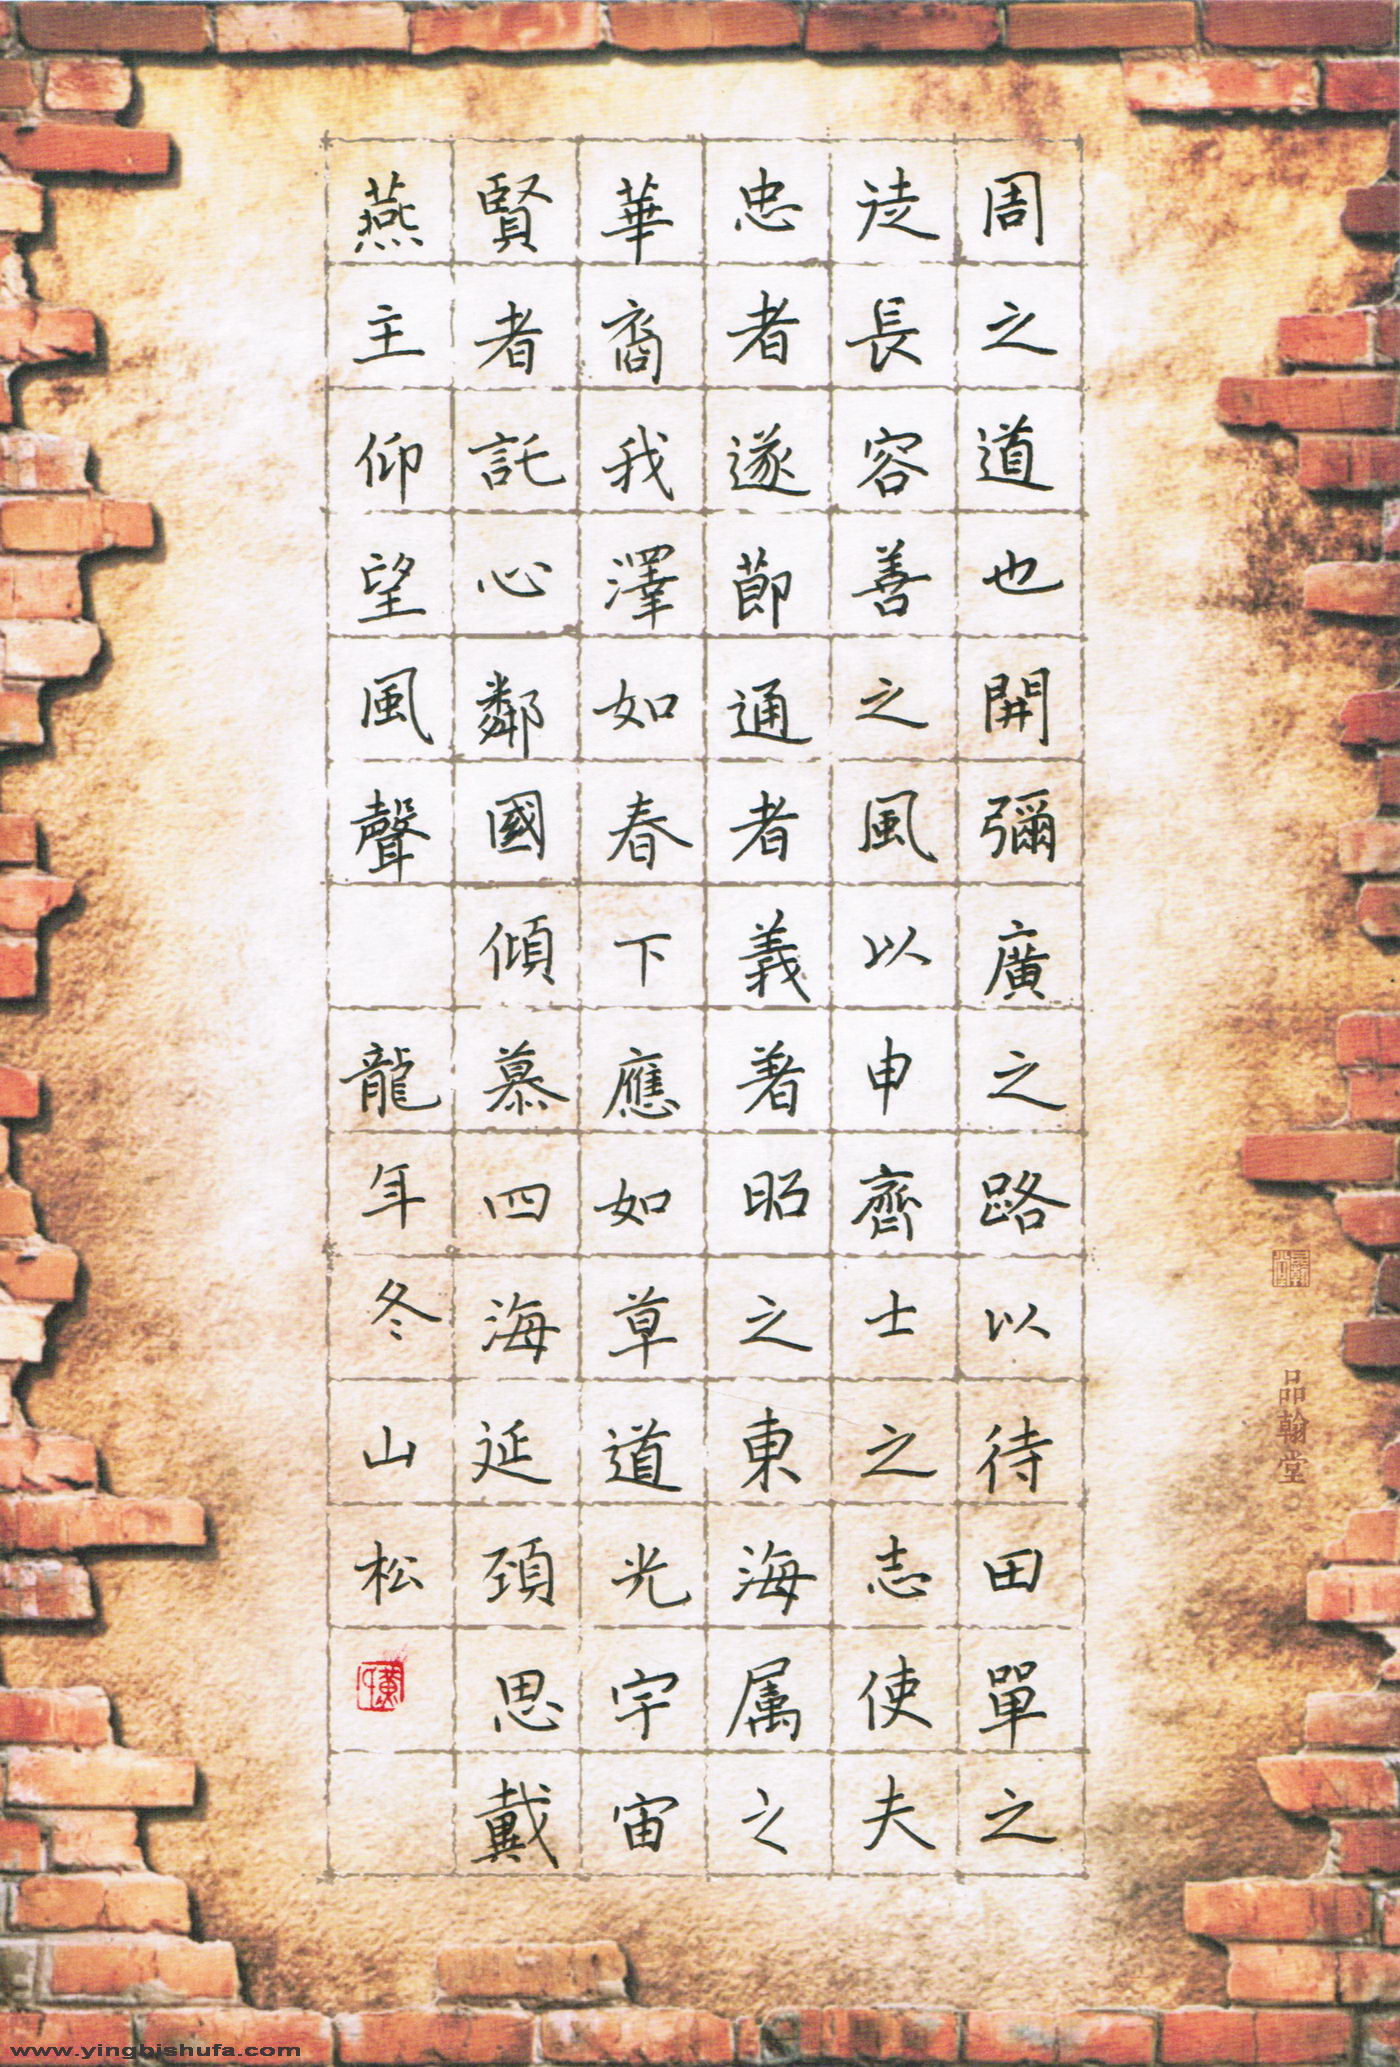 周之道也開彌廣之路以待田單之
徒長容善之風以申齊士之志使夫
忠者遂節通者義著昭之東海属之
華裔我澤如春下應如草道光宇宙
賢者託心鄰國傾慕四海延頚思戴
燕主仰望風聲 龍年冬山松
品翰堂
www.yingbishufa.com